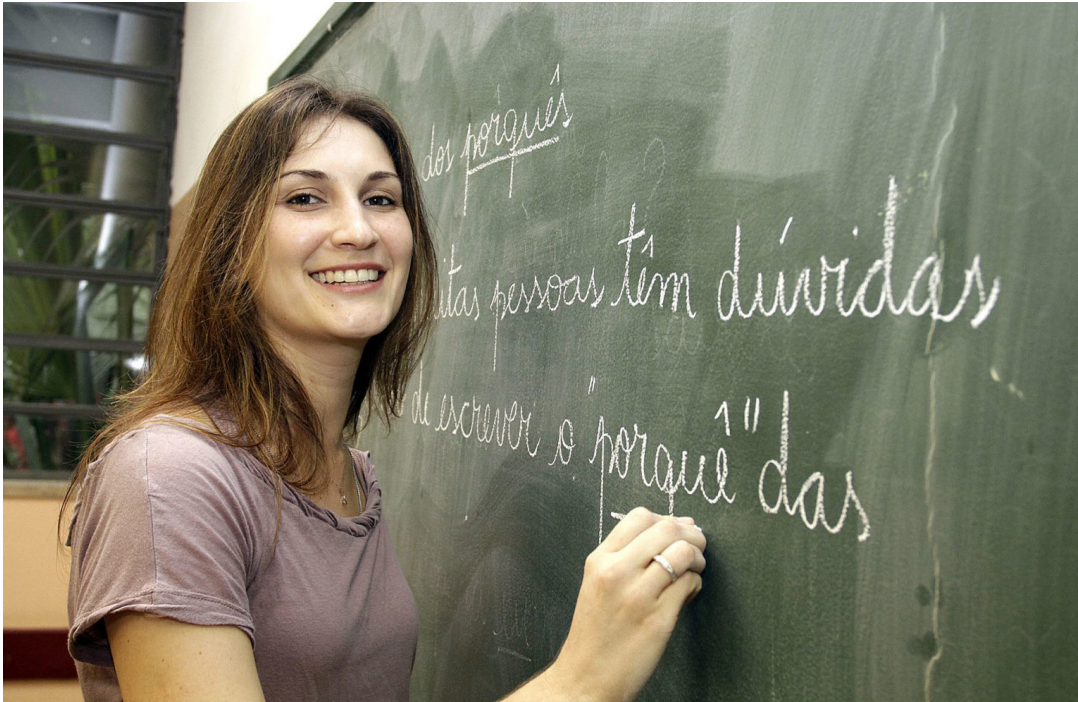 dos porquês
itas pessoas têm dúvidas
de escrever o "porquê" das